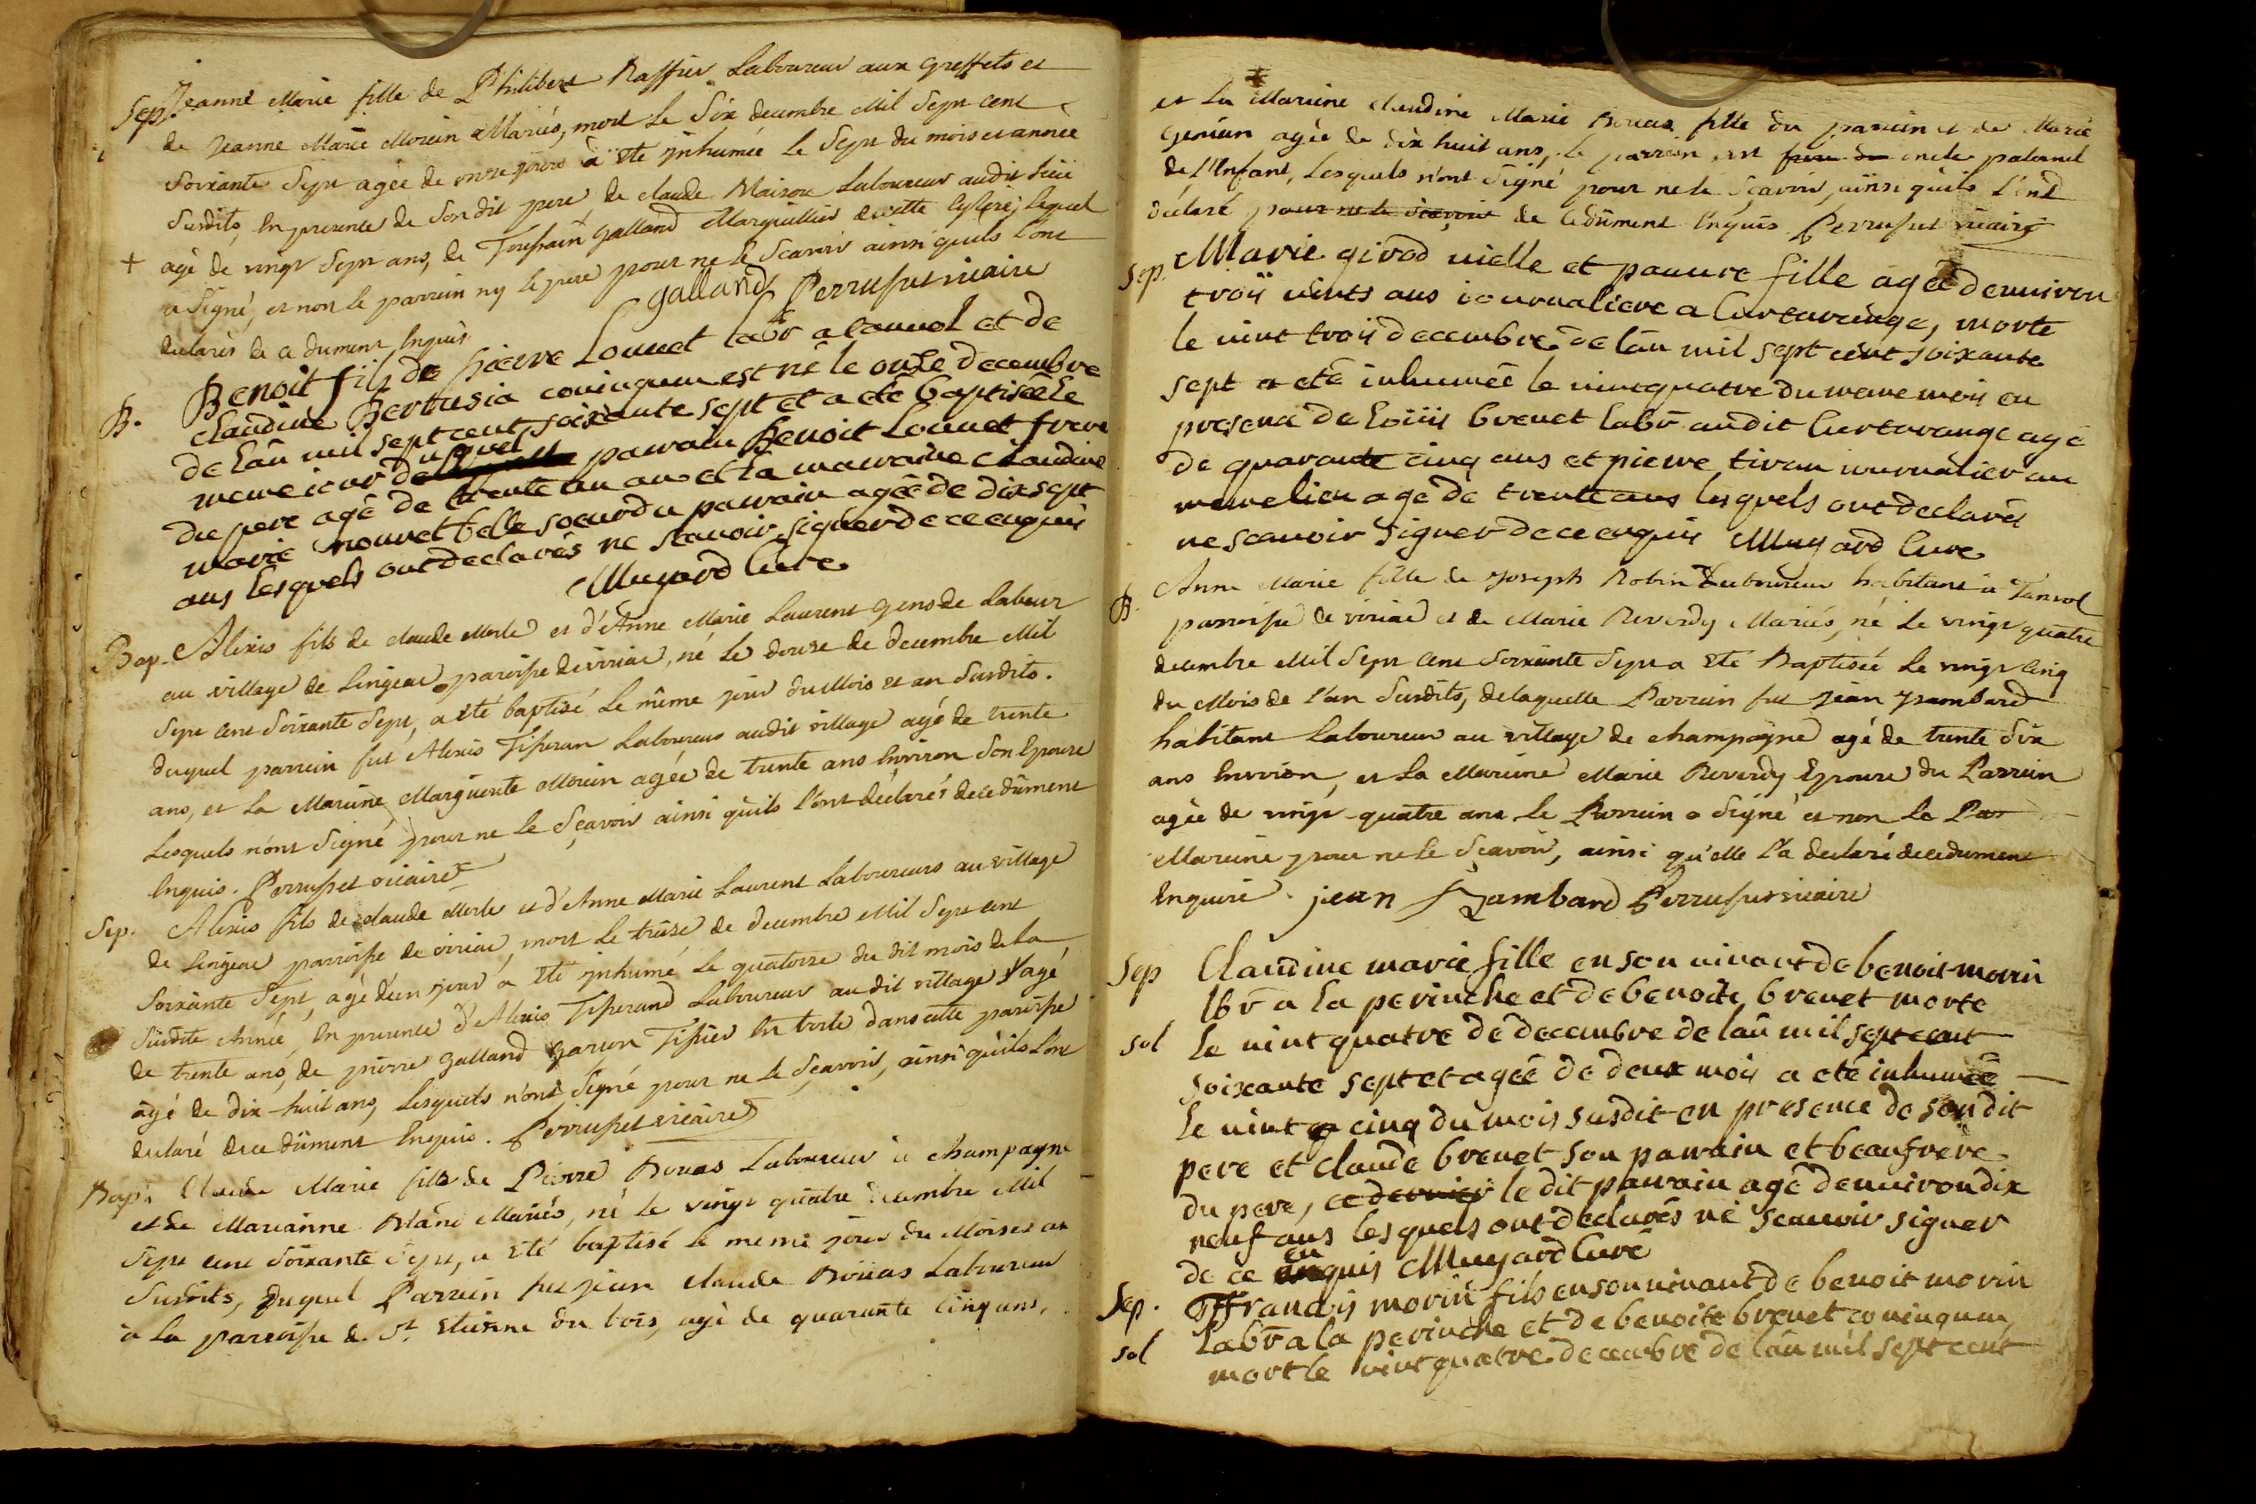 Sep. Jeanne Marie fille de Philibert Raffier Laboureur aux greffets et
de Jeanne Marie Morin Mariés, mort le Six decembre Mil Sept cent
Soixante Sept agée de onze jours à Eté jnhumée le Sept du mois et année
Susdits, En presence de Son dit pere de claude Laboureur audit lieu
+ agé de vingt Sept ans, de Toussain Galland Marguillier de cette Eglise, lequel
a Signé, et non le parrein ny le pere pour ne le Scavoir ainsi quils l'ont
declarés de ce dument Enquis galland Perrusset vicaire
B. Benoit fils de pierre Louvet labr a tanvol et de
claudine Bertusia conjugum est né le onze decembre
de lan mil sept cent soixante sept et a eté baptisé le
meme jour duquel parrain Benoit Louvet frere
du pere agé de trente un ans et la marraine claudine
marie nouvet belle soeur du parrain agée de dix sept
ans lesquels ont declarés ne scavoir signer de ce enquis
Muyard Cure
Bap. Alexis fils de claude Merle et d'Anne Marie Laurent gens de Labeur
au village de Lingeat paroisse de viriat, né le douze de decembre Mil
Sept cent Soixante Sept, a eté baptisé le même jour du Mois et an Susdits.
duquel parrein fut Alexis Tisseran Laboureur audit village agé de trente
ans, et la Mareine Marguerite Morin agée de trente ans Environ Son Epouse
Lesquels n'ont Signé pour ne le Sçavoir ainsi quils l'ont déclarés de ce dûment
Enquis. Perrusset vicaire
Sep. Alexis fils de claude Merle et d'Anne Marie Laurent Laboureurs au village
de Lingeat parroisse de viriat, mort le treize de decembre Mil Sept cent
Soixante Sept, agé d'un jour a Eté jnhumé le quatorze du dit mois de la
Susdite Année, En presence d'Alexis Tisserand Laboureur au dit village agé
de trente ans, de pierre galland garçon Tissier En toile dans cette parroisse
agé de dix-huit ans, Lesquels n'ont Signé pour ne le Sçavoir, ainsi qu'ils l'ont
declaré de ce dûment Enquis. Perrusset vicaire
Bap. Claude Marie fils de Pierre Bouas Laboureur à champagne
et de Marianne Blanc Mariés, né le vingt quatre decembre Mil
Sept cent Soixante Sept, a Eté baptisé le meme jour du Mois et an
Susdits, Duquel Parrein fut jean claude Boüas Laboureur
à la parroisse de St. Etienne du bois, agé de quarante Cinq ans,
et la Mareine claudine Marie Bouas fille du parrein et de Marie
agée de dix huit ans, le parrein est frere du oncle paternel
de l'Enfant, Lesquels n'ont Signé pour ne le Sçavoir, ainsi qu'ils l'ont
déclaré pour ne le scavoir de ce dûment Enquis Perrusset vicaire
Sep. Marie girod vielle et pauvre fille agée denviron
trois vints ans journaliere a Curtarenge, morte
le vint trois decembre de lan mil sept cent soixante
sept a eté inhumée le vint quatre du meme mois en
presence de Loüis brevet labr audit Curtarange agé
de quarante cinq ans et pierre tiran journalier au
meme lieu age de trente ans lesquels ont declarés
ne scavoir signer de ce enquis Muyard Cure
B. Anne Marie fille de Joseph Robin Laboureur habitant à Tanvol
parroisse de viriat et de Marie Reverdy Mariés, né le vingt quatre
decembre Mil Sept cent Soixante Sept a Eté Baptisée le vingt Cinq
du Mois de l'an Susdits, de laquelle Parrein fut jean jzambard
habitant Laboureur au village de champagne agé de trente Six
ans Environ, et la Mareine Marie Reverdy Epouse du Parrein
agée de vingt-quatre ans le Parrein a Signé et non la Par
Mareine pour ne le Scavoir, ainsi qu'elle l'a declaré de ce dument
Enquise. jean jzambard Perrusset vicaire
Sep Claudine marie fille en son vivant de benoit morin
lbr a la perinche et de benoite brevet morte
sol le vint quatre de decembre de lan mil sept cent
soixante sept et agée de deux mois a eté inhumée
le vint cinq du mois susdit en presence de son dit
pere et claude brevet son parrain et beaufrere
du pere, ce dernier le dit parrain agé denviron dix
neuf ans lesquels ont declarés ne scavoir signer
de ce enquis Muyard Curé
Sep. ffrançois morin fils en son vivant de benoit morin
labr a la perinche et de benoite brevet conjugum
sol mort le vint quatre decembre de lan mil sept cent